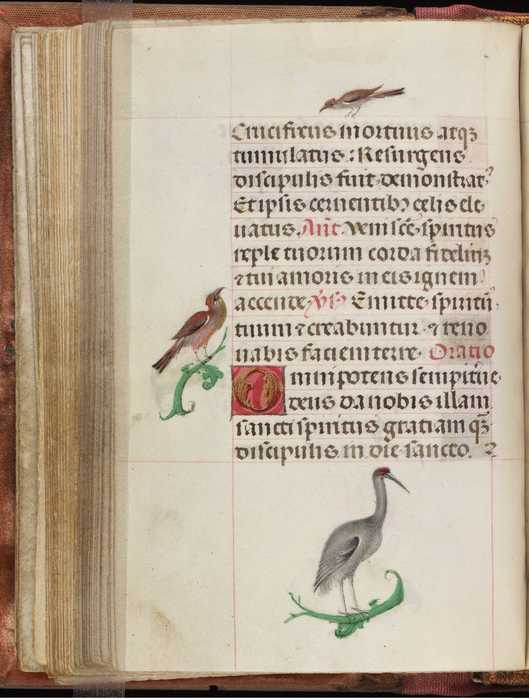 Crucifixus mortuus atq3
tumulatus : Resurgens
discipulis fuit demonstrat9
Et ipsis cernentib9 celis ele
uatus. Ant̃. Veni scẽ spiritus
reple tuorum corda fideliu3
⁊ tui amoris in eis ignem
accende. V̷s̷ Emitte spiritũ
tuum ⁊ creabuntur ⁊ reno
uabis faciem terre. Oratio
Omnipotens sempiterne
deus da nobis illam
sancti spiritus gratiam q̃3
discipulis in die sancto.